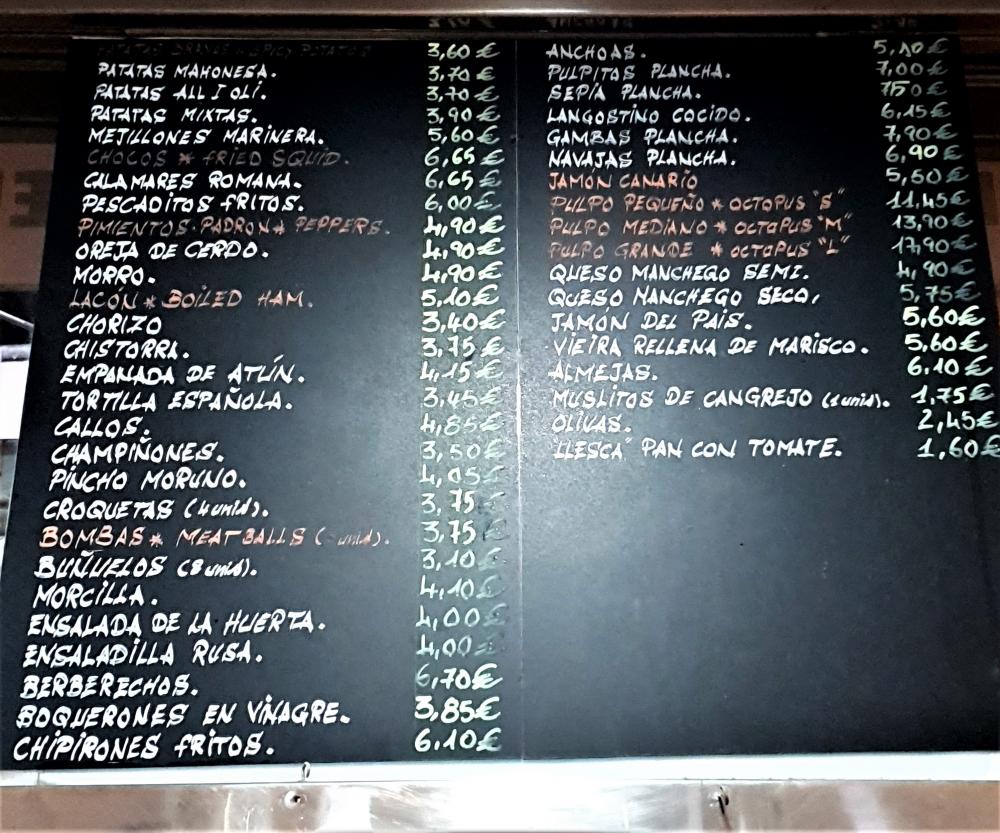 PATATAS BRAVAS * SPICY POTATOS 3,60€
PATATAS MAHONESA. 3,70€
PATATAS ALL I OLI. 3,70€
PATATAS MIXTAS. 3,90€
MEJILLONES MARINERA. 5,60€
CHOCOS * FRIED SQUID. 6,65€
CALAMARES ROMANA. 6,65€
PESCADITOS FRITOS. 6,00€
PIMIENTOS PADRON * PEPPERS. 4,90€
OREJA DE CERDO. 4,90€
MORRO. 4,90€
LACÓN * BOILED HAM. 5,10€
CHORIZO 3,40€
CHISTORRA. 3,75€
EMPANADA DE ATÚN. 4,15€
TORTILLA ESPAÑOLA. 3,45€
CALLOS. 4,85€
CHAMPIÑONES. 3,50€
PINCHO MORUNO. 4,05€
CROQUETAS (4 unid). 3,75
BOMBAS * MEATBALLS ( unid). 3,75
BUÑUELOS (8 unid). 3,10€
MORCILLA. 4,10€
ENSALADA DE LA HUERTA. 4,00€
ENSALADILLA RUSA. 4,00€
BERBERECHOS. 6,70€
BOQUERONES EN VINAGRE. 3,85€
CHIPIRONES FRITOS. 6,10€
ANCHOAS. 5,10€
PULPITOS PLANCHA. 7,00€
SEPÍA PLANCHA. 7,50€
LANGOSTINO COCIDO. 6,15€
GAMBAS PLANCHA. 7,90€
NAVAJAS PLANCHA. 6,90€
JAMÓN CANARIO 5,60€
PULPO PEQUEÑO * OCTOPUS "S" 11,45€
PULPO MEDIANO * OCTOPUS "M" 13,90€
PULPO GRANDE * OCTOPUS "L" 17,90€
QUESO MANCHEGO SEMI. 4,90€
QUESO MANCHEGO SECO, 5,75€
JAMÓN DEL PAIS. 5,60€
VIEIRA RELLENA DE MARISCO. 5,60€
ALMEJAS. 6.10€
MUSLITOS DE CANGREJO (1 unid). 1,75€
OLIVAS. 2,45€
LLESCA" PAN CON TOMATE. 1,60€